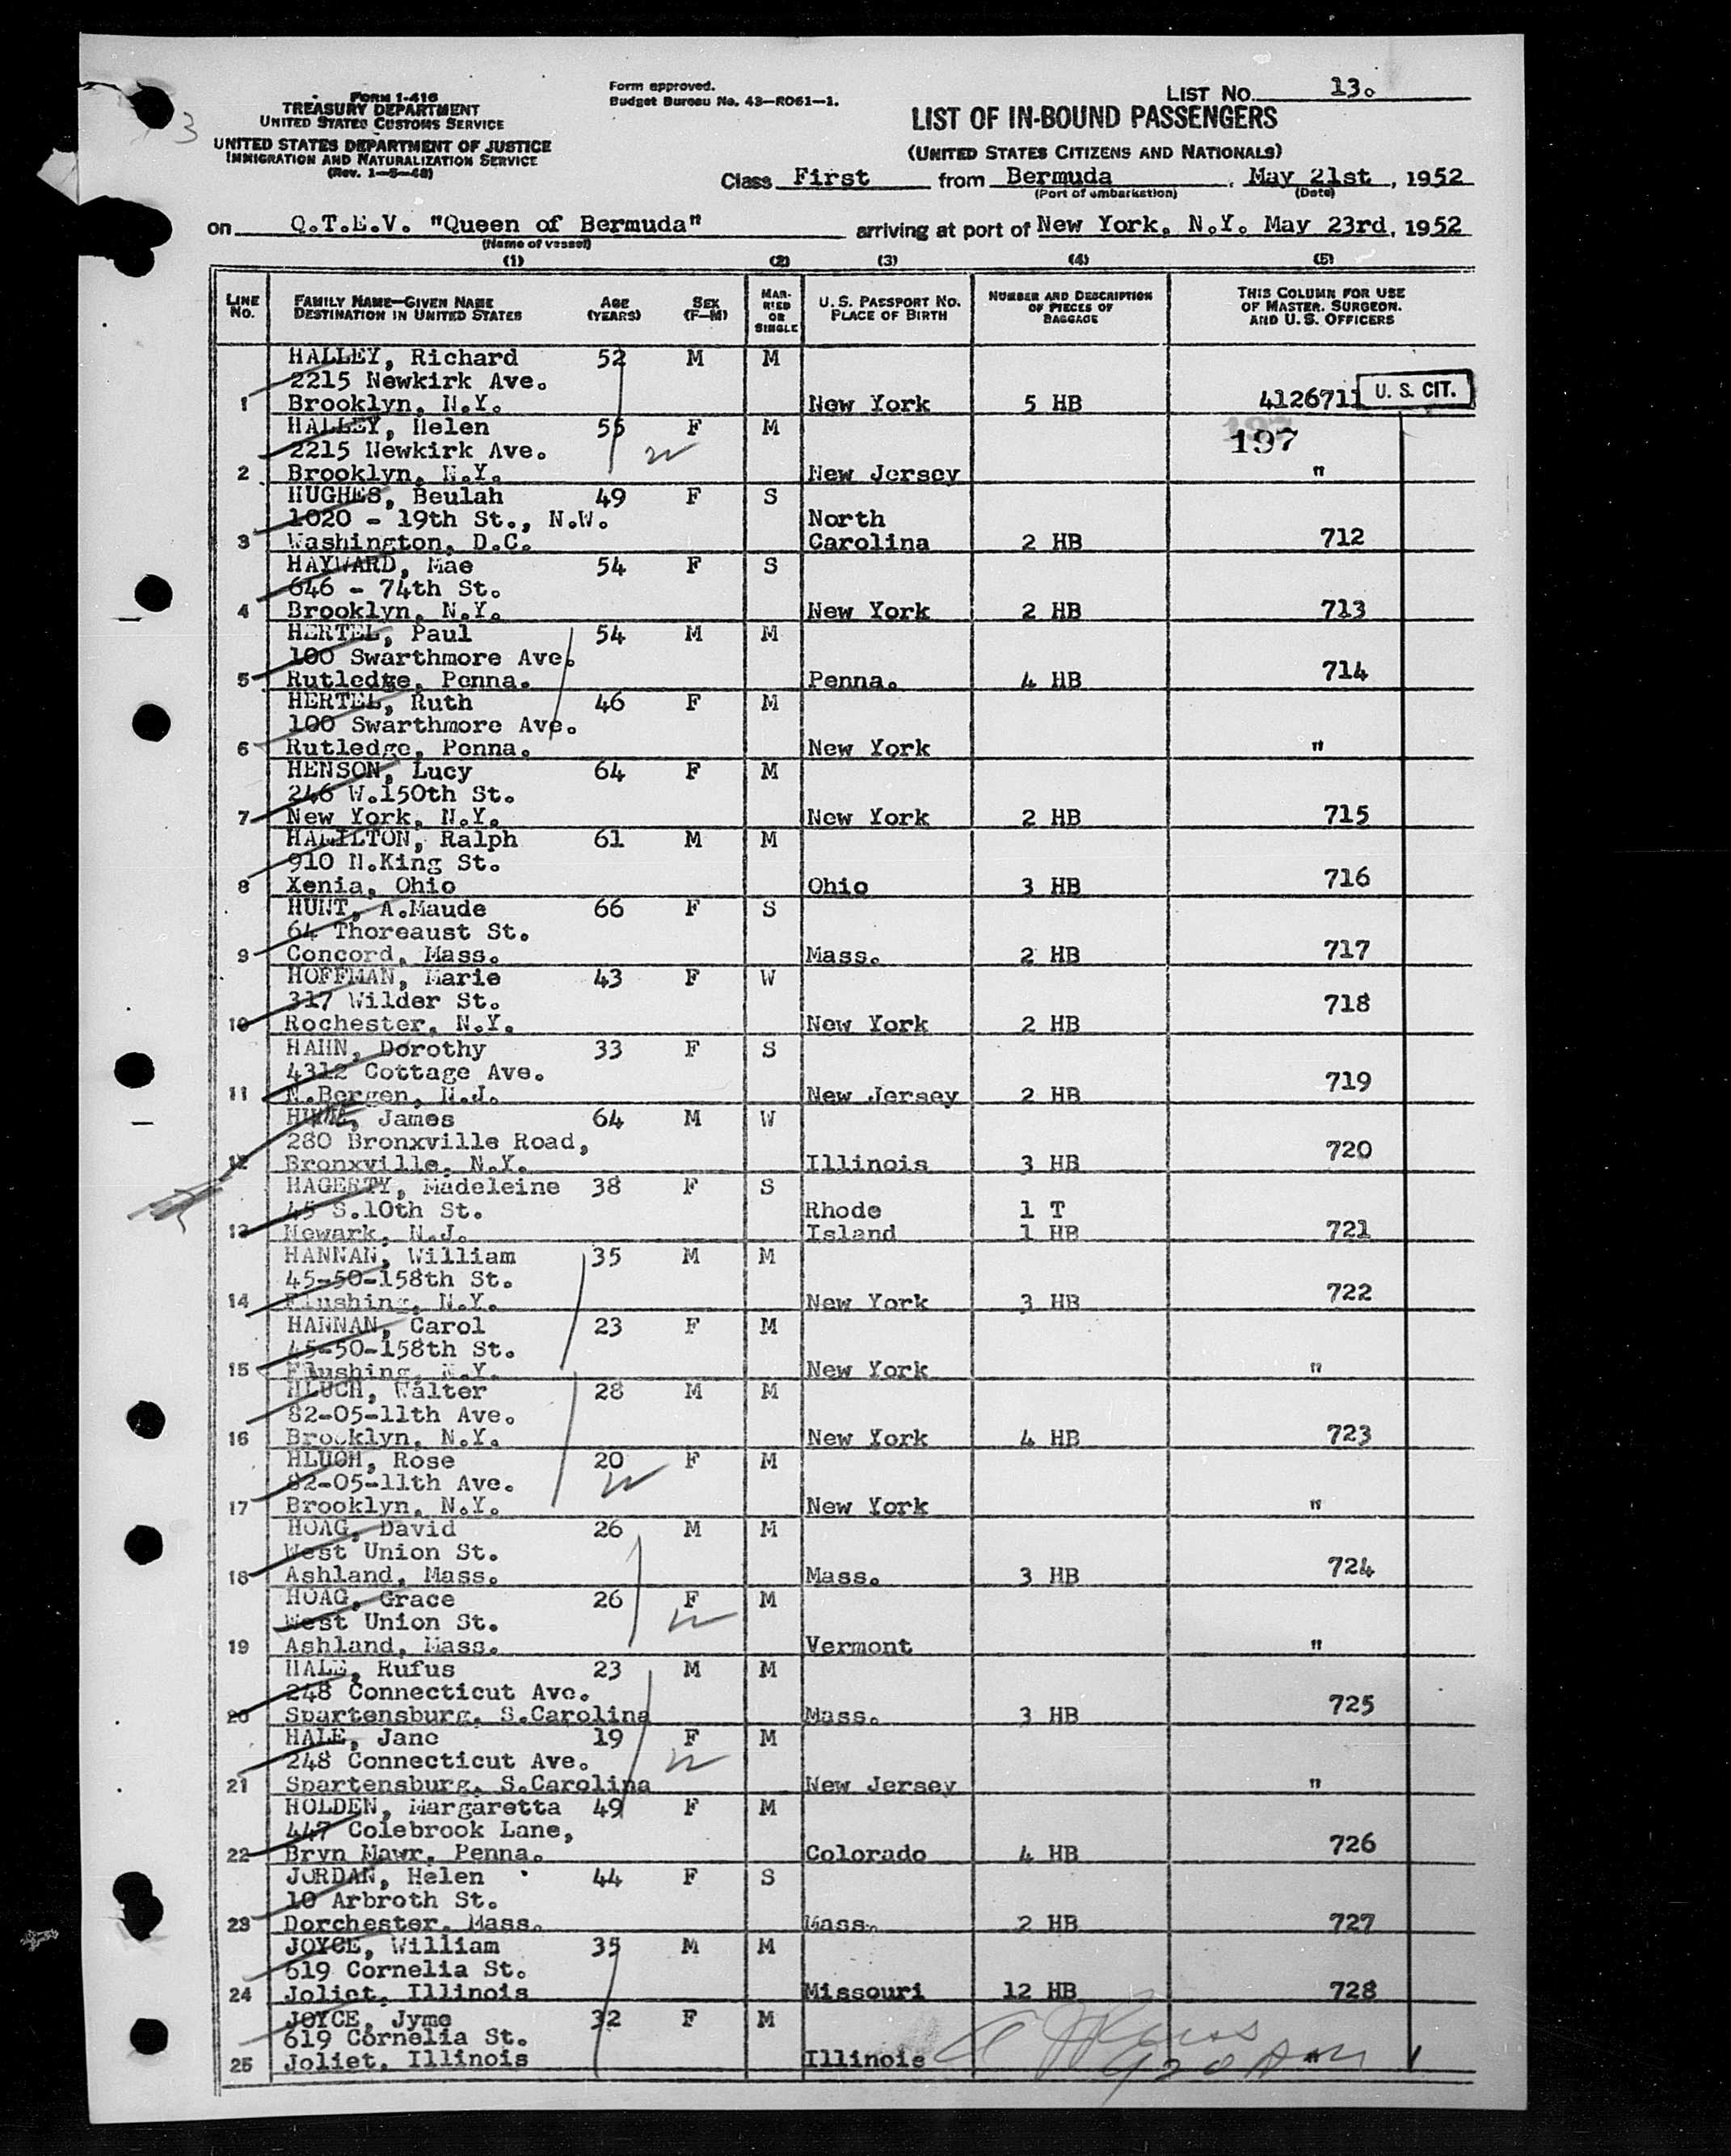 FORM I-416
TREASURY DEPARTMENT
UNITED STATES CUSTOMS SERVICE
UNITED STATES DEPARTMENT OF JUSTICE
IMMIGRATION AND NATURALIZATION SERVICE
(Rev. 1-5-48)
Form approved.
Budget Bureau No. 43-R061-1.
LIST NO. 13.
LIST OF IN-BOUND PASSENGERS
(UNITED STATES CITIZENS AND NATIONALS)
Class First from Bermuda, May 21st, 1952
(Port of embarkation) (Date)
on Q.T.E.V. "Queen of Bermuda" arriving at port of New York, N.Y. May 23rd, 1952
(Name of vessel)
(1) (2) (3) (4) (5)
LINE No. FAMILY NAME—GIVEN NAME DESTINATION IN UNITED STATES AGE (YEARS) SEX (F-M) MARRIED OR SINGLE U. S. PASSPORT NO. PLACE OF BIRTH NUMBER AND DESCRIPTION OF PIECES OF BAGGAGE THIS COLUMN FOR USE OF MASTER, SURGEON, AND U. S. OFFICERS
HALLEY, Richard 52 M M
2215 Newkirk Ave.
1 Brooklyn, N.Y. New York 5 HB 4126711 U. S. CIT.
HALLEY, Helen 55 F M 197
2215 Newkirk Ave.
2 Brooklyn, N.Y. New Jersey "
HUGHES, Beulah 49 F S
1020 - 19th St., N.W. North
3 Washington, D.C. Carolina 2 HB 712
HAYWARD, Mae 54 F S
646 - 74th St.
4 Brooklyn, N.Y. New York 2 HB 713
HERTEL, Paul 54 M M
100 Swarthmore Ave.
5 Rutledge, Penna. Penna. 4 HB 714
HERTEL, Ruth 46 F M
100 Swarthmore Ave.
6 Rutledge, Penna. New York "
HENSON, Lucy 64 F M
246 W.150th St.
7 New York, N.Y. New York 2 HB 715
HAMILTON, Ralph 61 M M
910 N.King St.
8 Xenia, Ohio Ohio 3 HB 716
HUNT, A.Maude 66 F S
64 Thoreaust St.
9 Concord, Mass. Mass. 2 HB 717
HOFFMAN, Marie 43 F W
317 Wilder St.
10 Rochester, N.Y. New York 2 HB 718
HAHN, Dorothy 33 F S
4312 Cottage Ave.
11 N.Bergen, N.J. New Jersey 2 HB 719
James 64 M W
280 Bronxville Road,
12 Bronxville, N.Y. Illinois 3 HB 720
HAGERTY, Madeleine 38 F S
45 S.10th St. Rhode 1 T
13 Newark, N.J. Island 1 HB 721
HANNAN, William 35 M M
45-50-158th St.
14 Flushing, N.Y. New York 3 HB 722
HANNAN, Carol 23 F M
45-50-158th St.
15 Flushing, N.Y. New York "
HLUCH, Walter 28 M M
82-05-11th Ave.
16 Brooklyn, N.Y. New York 4 HB 723
HLUCH, Rose 20 F M
82-05-11th Ave.
17 Brooklyn, N.Y. New York "
HOAG, David 26 M M
West Union St.
18 Ashland, Mass. Mass. 3 HB 724
HOAG, Grace 26 F M
West Union St.
19 Ashland, Mass. Vermont "
HALE, Rufus 23 M M
248 Connecticut Ave.
20 Spartensburg, S.Carolina Mass. 3 HB 725
HALE, Jane 19 F M
248 Connecticut Ave.
21 Spartensburg, S.Carolina New Jersey "
HOLDEN, Margaretta 49 F M
447 Colebrook Lane,
22 Bryn Mawr, Penna. Colorado 4 HB 726
JORDAN, Helen 44 F S
10 Arbroth St.
23 Dorchester, Mass. Mass. 2 HB 727
JOYCE, William 35 M M
619 Cornelia St.
24 Joliet, Illinois Missouri 12 HB 728
JOYCE, Jyme 32 F M
619 Cornelia St.
25 Joliet, Illinois Illinois "
920 AM